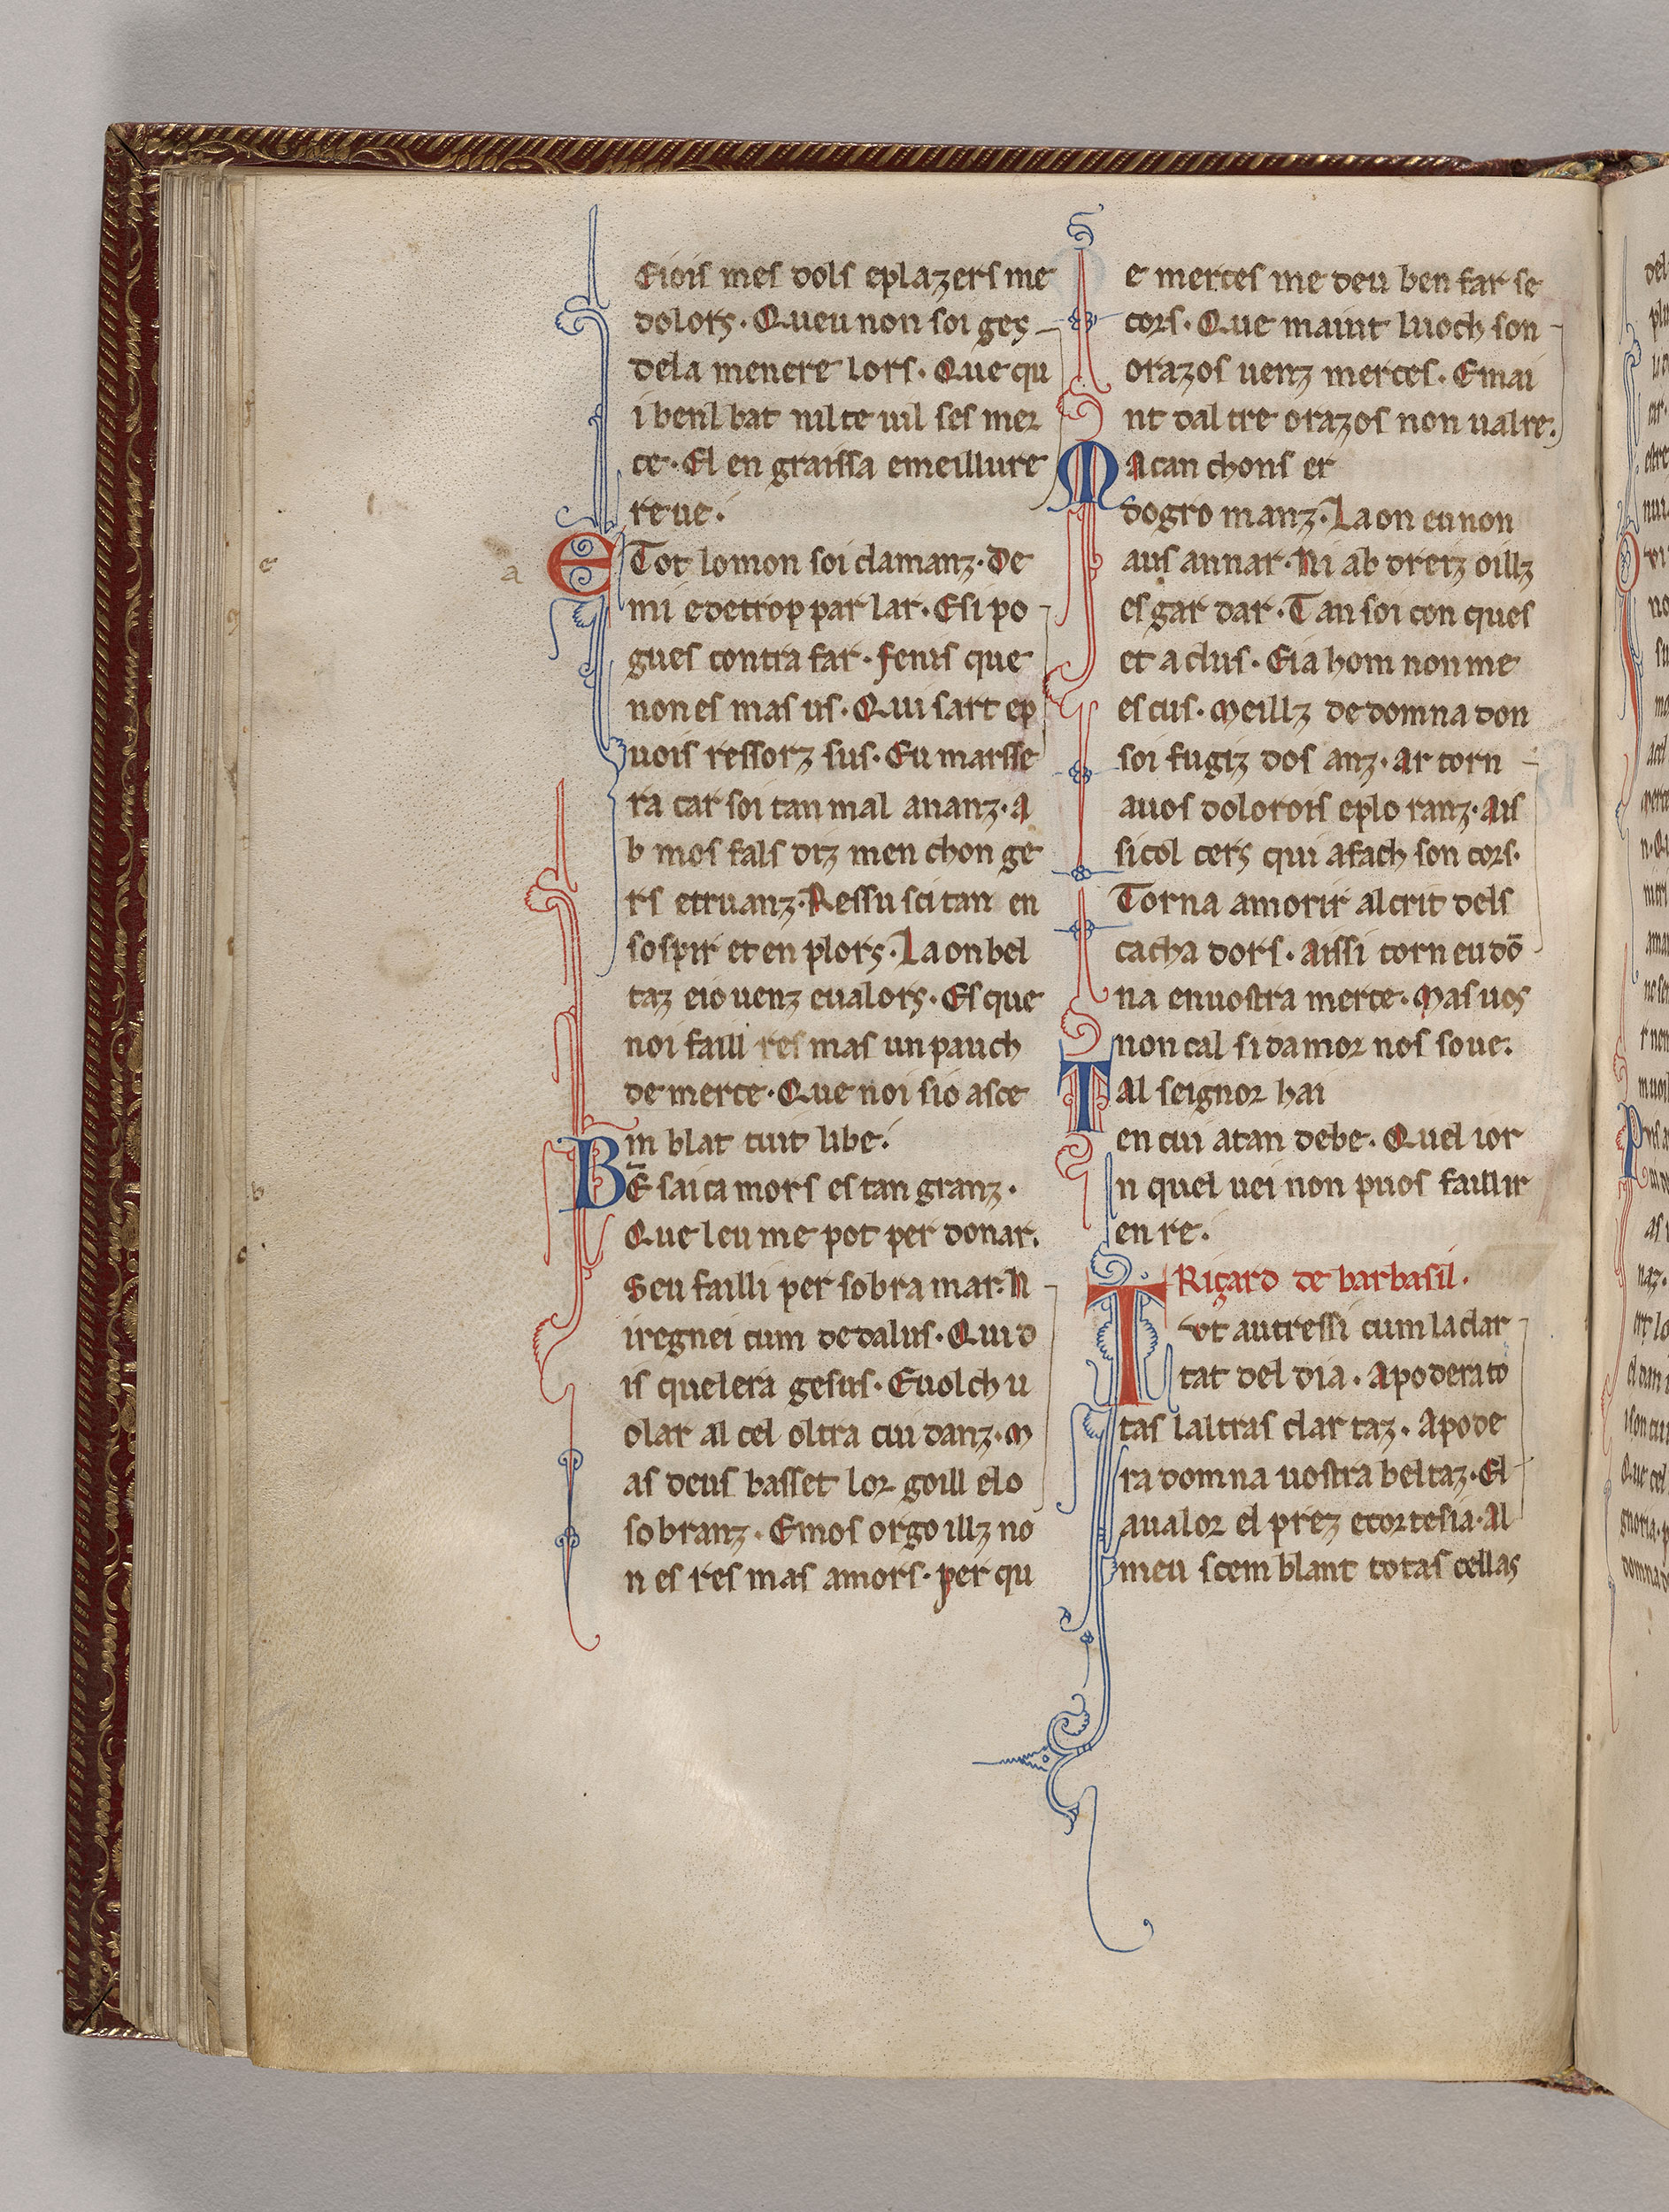 Eiois mes dols eplazers me
dolors. Queu non soi ges
dela menere lors. Que qu
i benl bat nil te uil ses mer
ce. El en graissa emeillure
reue.
E Tot lomon soi clamanz. De
mi e detrop par lar. Esi po
gues contra far. fenis que
non es mas us. Qui sart ep
uois ressorz sus. Eu marsse
ra car soi tan mal ananz. a
b mos fals diz men chon ge
rs etruanz. Ressu sci tan en
sospir et en plors. La on bel
taz eio uenz eualors. Es que
noi faill res mas un pauch
de merce. Que noi sio asce
m blat tuit li be.
BE sai ca mors es tan granz.
Que leu me pot per donar.
Seu failli per sobra mar. N
i regnei cum dedalus. Qui d
is quelera gesus. Euolch u
olar al cel oltra cui danz. M
as deus basset lor goill elo
sobranz. Emos orgo illz no
n es res mas amors. per qu
e merces me deu ben far se
cors. Que maint luoch son
orazos uenz merces. Emai
nt daltre orazos non ualre.
Ma can chons er
dogro manz. La on eu non
aus annar. Ni ab dreiz oillz
es gar dar. Tan soi con ques
et aclus. Eia hom non me
es cus. Meillz de domna don
soi fugiz dos anz. Ar torn
auos doloros eplo ranz. Ais
sicol cers qui afach son cors.
Torna amorir alcrit dels
cacha dors. Aissi torn eu dō
na enuostra merce. Mas uos
non cal si damor nos soue.
Tal seignor hai
en cui atan debe. Quel ior
n quel uei non puos faillir
en re.
Riçard de barbasil.
Tot autressi cum la clar
tat del dia. Apodera to
tas laltras clar taz. Apode
ra domna uostra beltaz. El
aualor el prez ecortesia. Al
meu scem blant totas cellas